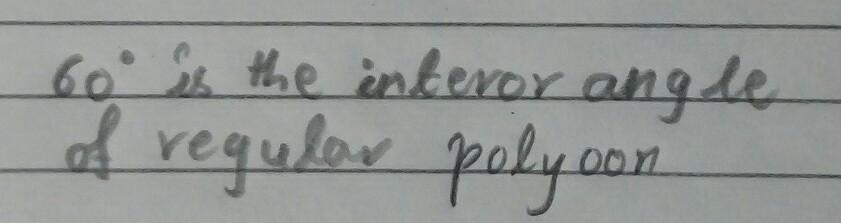 60° is the interor angle
of regular polyoon